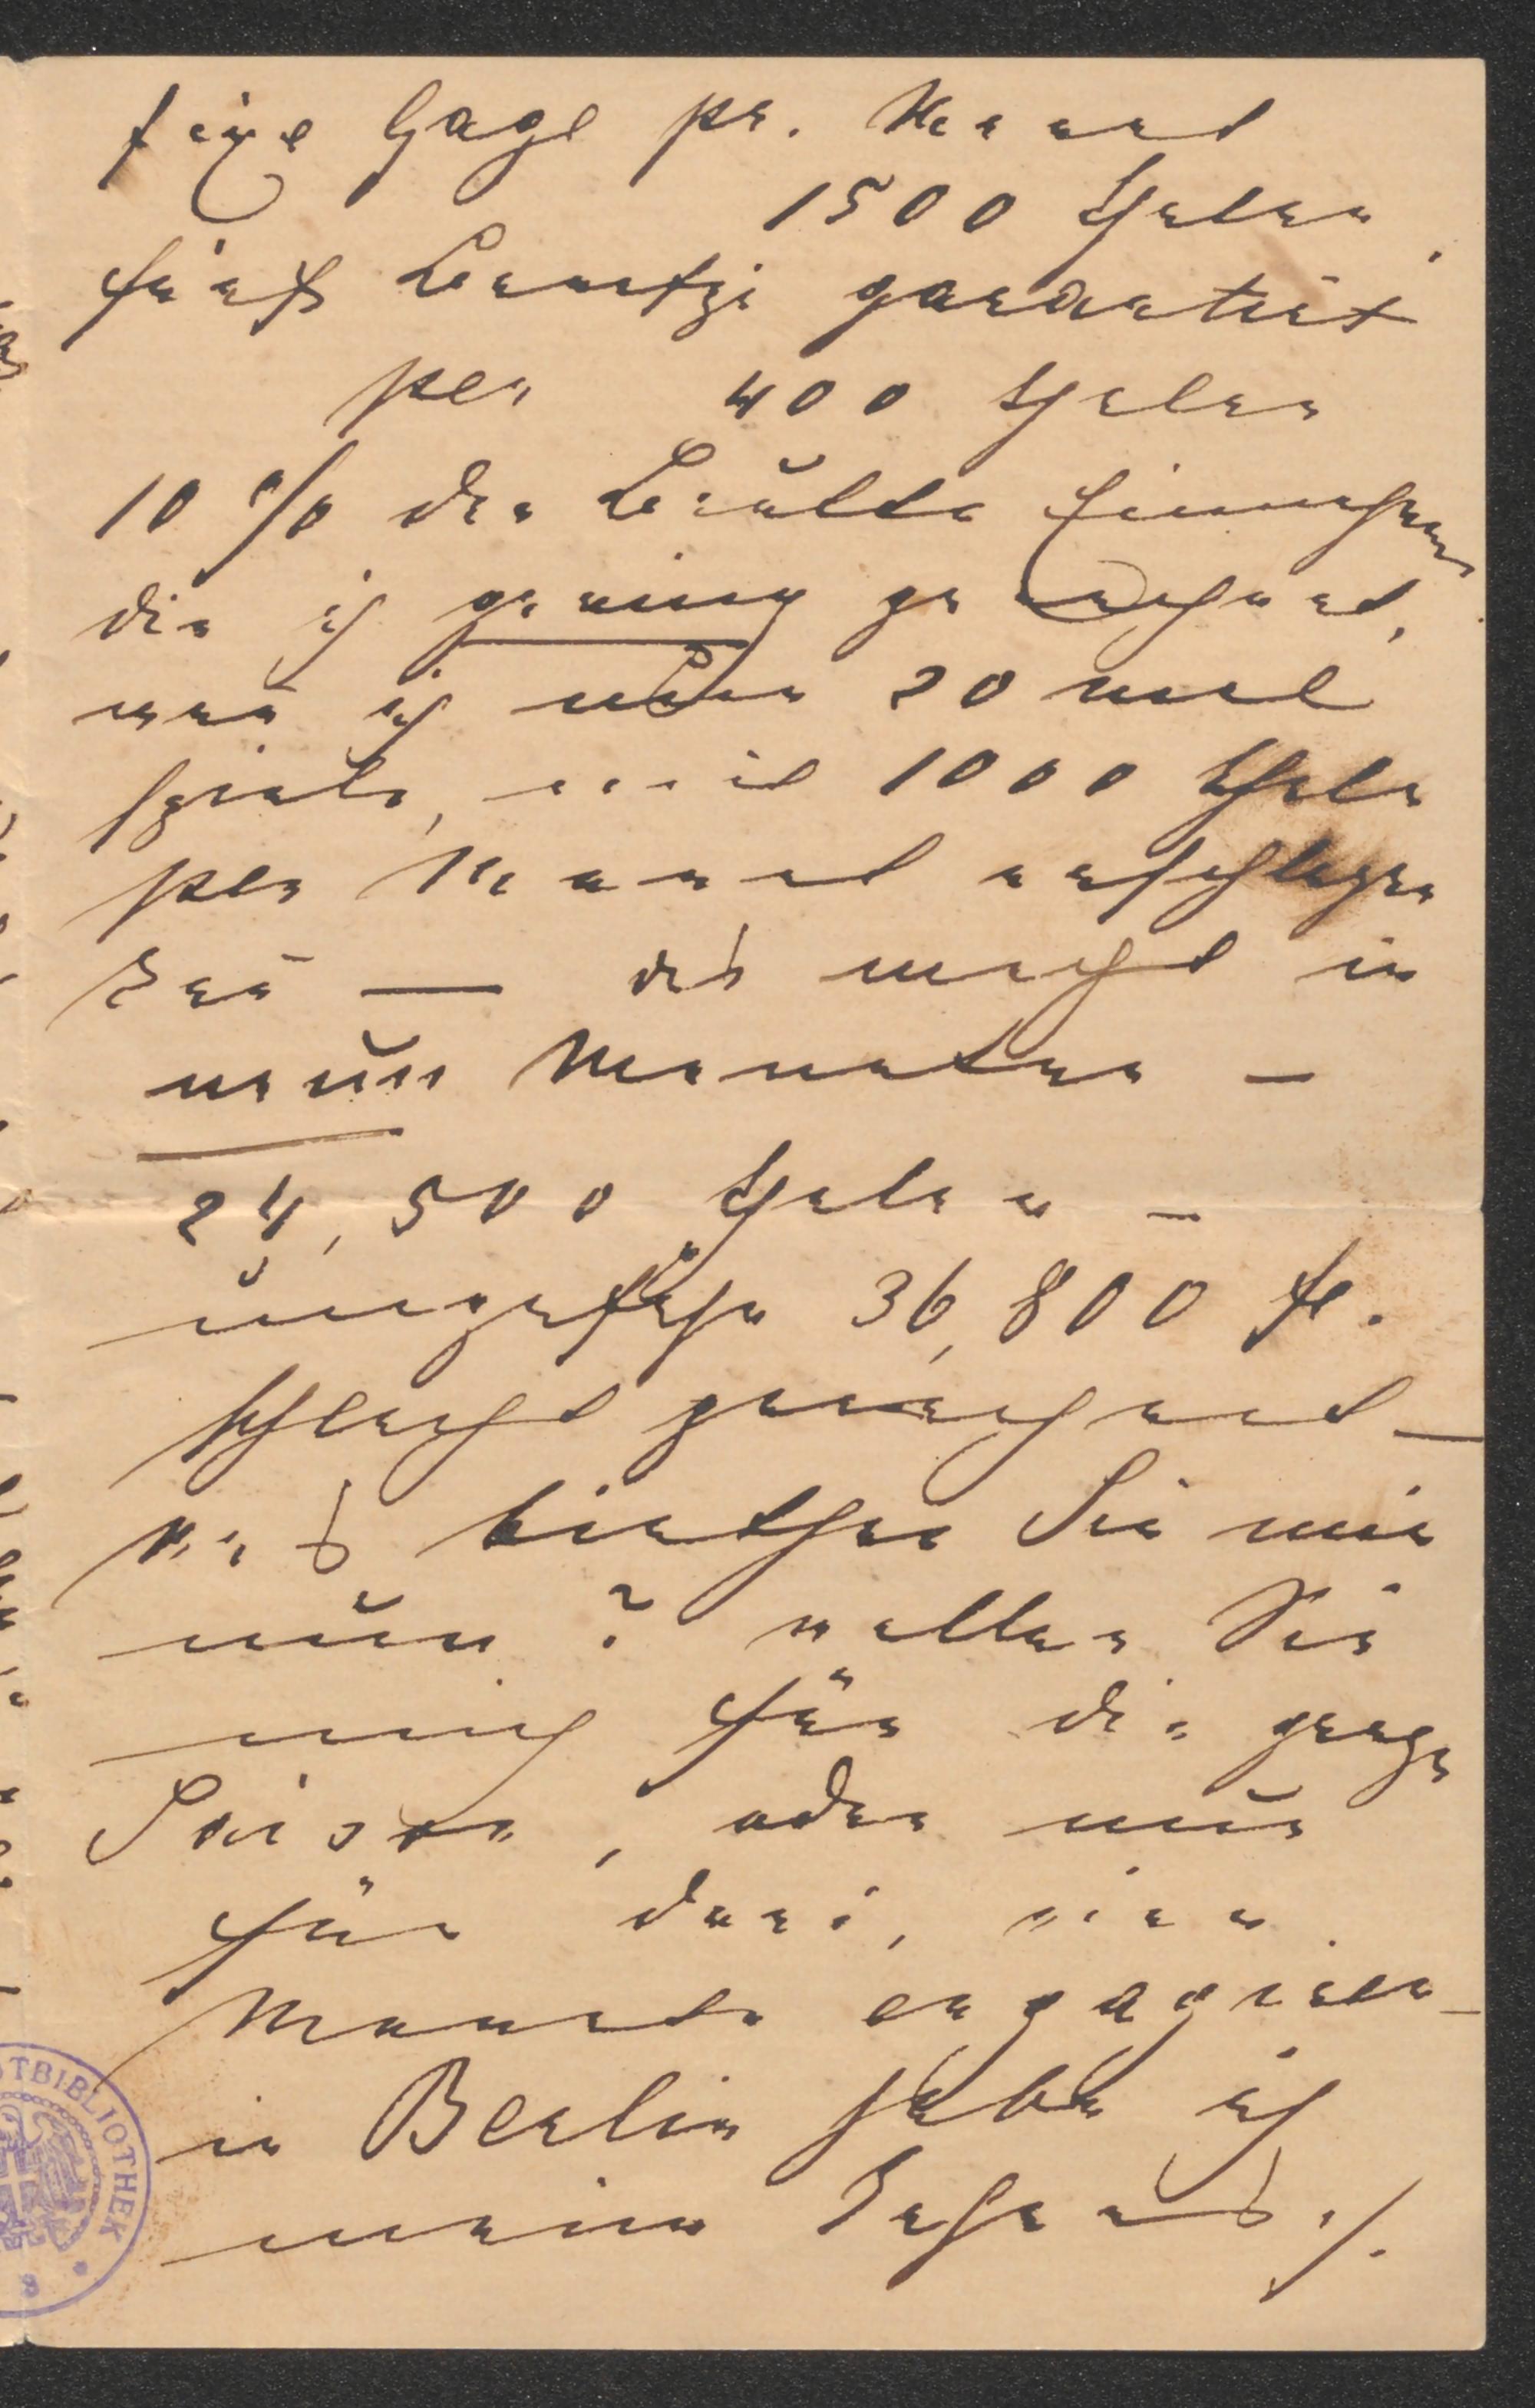 fixe Gage pr. Monat
1500 Thaler.
fünf Benefize garantirt
per 400 Thaler
10 % der Brutto Einnahmen
die ich gering gerechnet,
wen̄ ich nur 20 mal
spiele, mit 1000 Thaler
per Monat anschlagen
kan̄ — das macht in
neun Monaten —
24,500 Thaler —
ungefähr 36,800 fl.
schlecht gerechnet —
Was biethen Sie mir
nun? wollen Sie
mich für die ganze
Saison, oder nur
für drei, vier
Monate engagiren —
in Berlin habe ich
meine
OTBIBLIOTHEK